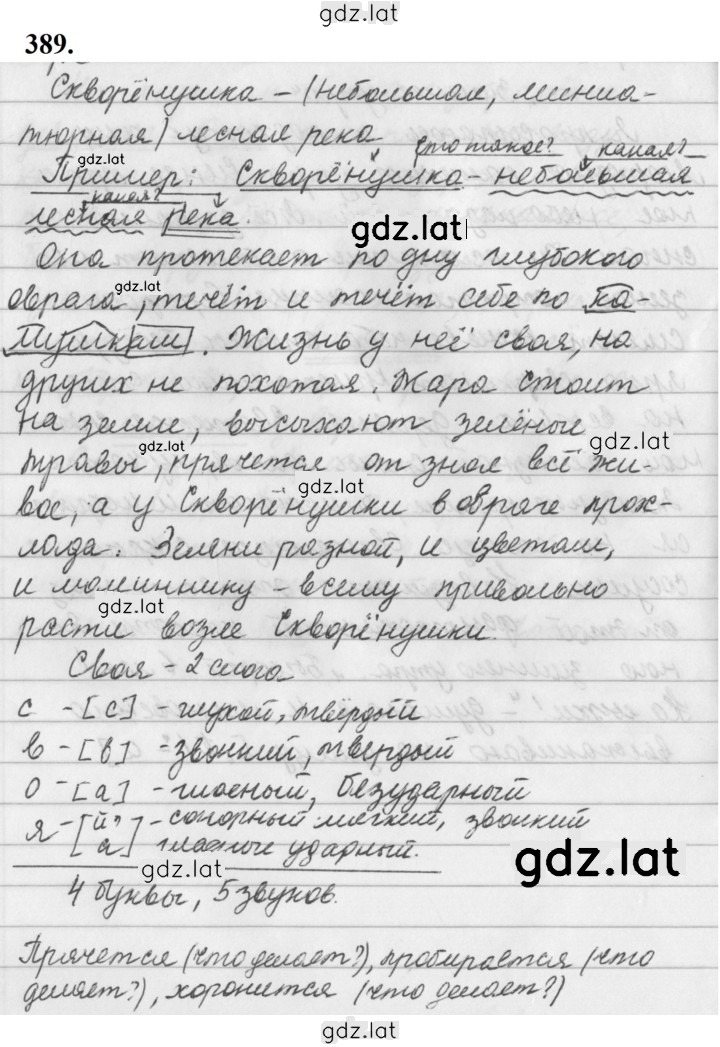 gdz.lat
389.
Скворёнушка – (небольшая, миниа-
тюрная) лесная река
gdz.lat что такое? какая?
Пример: Скворёнушка – небольшая
какая?
лесная река.
gdz.lat
Она протекает по дну глубокого
gdz.lat
оврага, течёт и течёт себе по ка-
мушкам. Жизнь у неё своя, на
других не похожая. Жара стоит
на земле, высыхают зелёные
gdz.lat gdz.lat
травы, прячется от зноя всё жи-
gdz.lat
вое, а у Скворёнушки в овраге прох-
лада. Зелени разной, и цветам,
и малиннику – всему привольно
gdz.lat
расти возле Скворёнушки.
Своя – 2 слога
с – [с] – глухой, твёрдый
в – [в] – звонкий, твердый
о – [а] – гласный, безударный
я – [й'] – сонорный мягкий, звонкий
[а] гласные ударный.
gdz.lat gdz.lat
4 буквы, 5 звуков.
Прячется (что делает?), пробирается (что
делает?), хоронится (что делает?)
gdz.lat